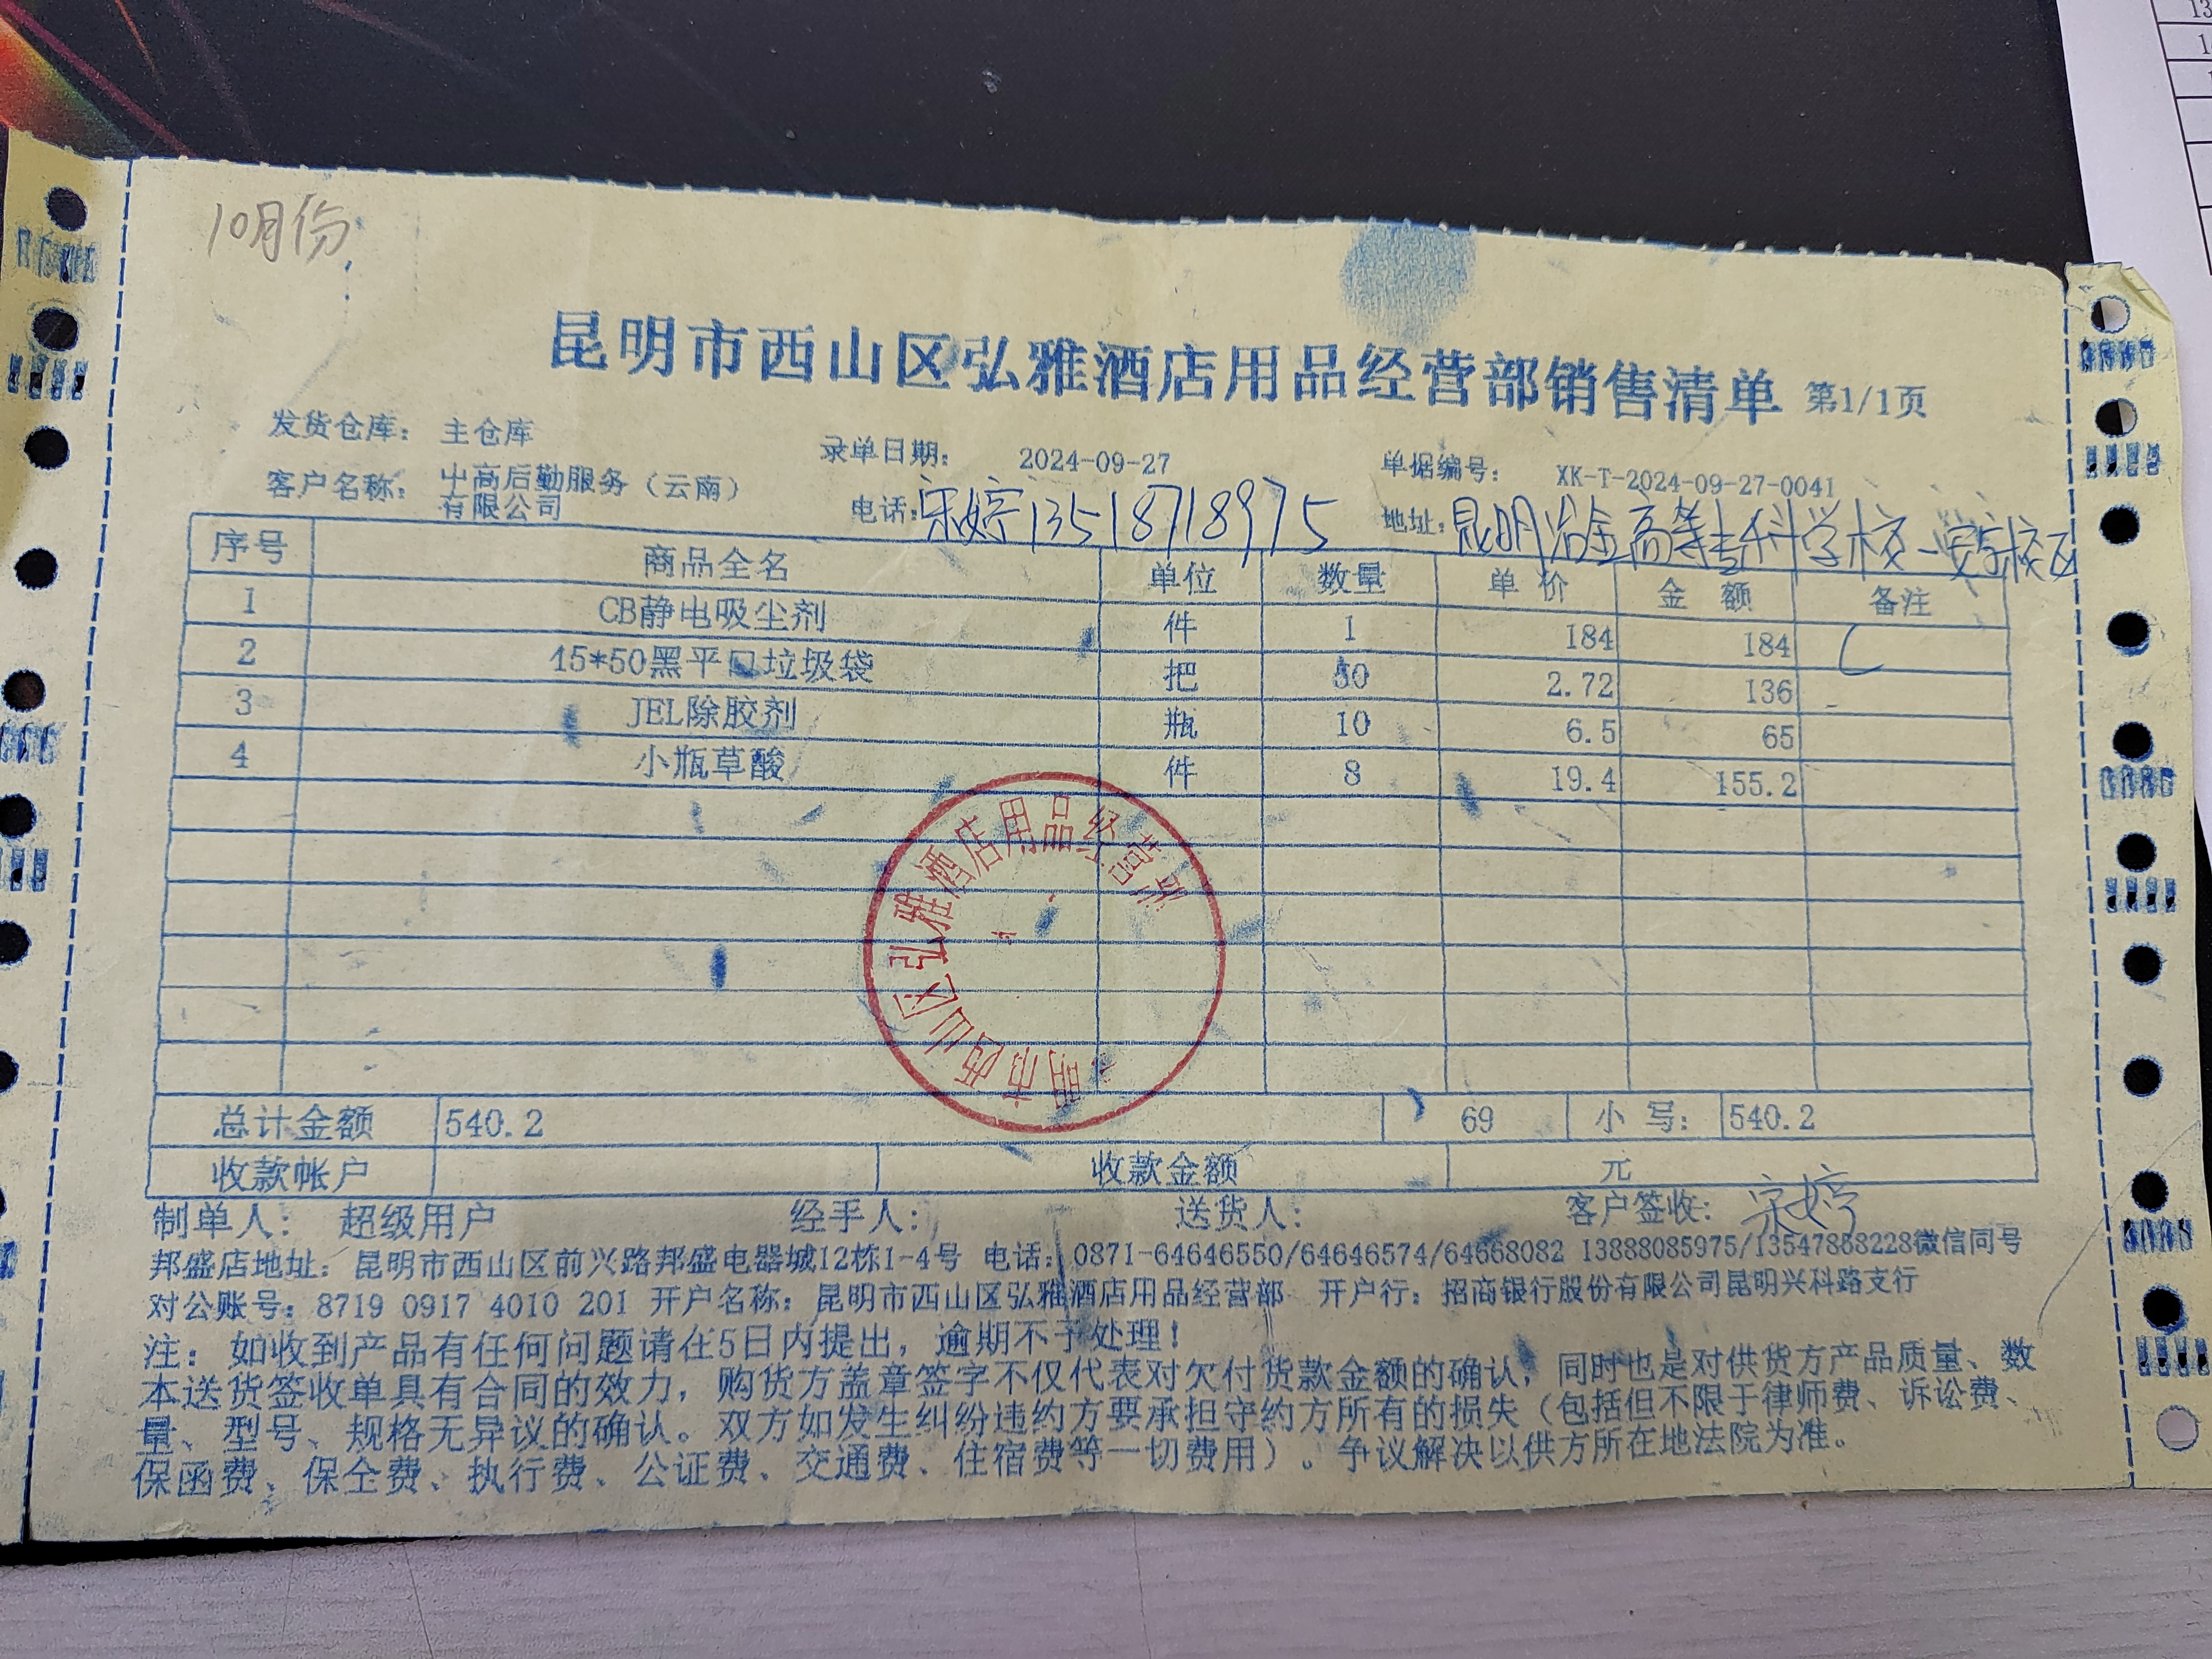 10月份
昆明市西山区弘雅酒店用品经营部销售清单 第1/1页
发货仓库： 主仓库 录单日期： 2024-09-27 单据编号： XK-T-2024-09-27-0041
客户名称： 中高后勤服务（云南）有限公司 电话：宋婷13518718975 地址：昆明冶金高等专科学校-安宁校区
序号 商品全名 单位 数量 单价 金额 备注
1 CB静电吸尘剂 件 1 184 184
2 45*50黑平口垃圾袋 把 50 2.72 136
3 JEL除胶剂 瓶 10 6.5 65
4 小瓶草酸 件 8 19.4 155.2
明市西山区弘雅酒店用品经营部
总计金额 540.2 69 小写： 540.2
收款帐户 收款金额 元
制单人： 超级用户 经手人： 送货人： 客户签收： 宋婷
邦盛店地址：昆明市西山区前兴路邦盛电器城12栋1-4号 电话：0871-64646550/64646574/64668082 13888085975/13547868228微信同号
对公账号：8719 0917 4010 201 开户名称：昆明市西山区弘雅酒店用品经营部 开户行：招商银行股份有限公司昆明兴科路支行
注：如收到产品有任何问题请在5日内提出，逾期不予处理！
本送货签收单具有合同的效力，购货方盖章签字不仅代表对欠付货款金额的确认，同时也是对供货方产品质量、数
量、型号、规格无异议的确认。双方如发生纠纷违约方要承担守约方所有的损失（包括但不限于律师费、诉讼费、
保函费、保全费、执行费、公证费、交通费、住宿费等一切费用）。争议解决以供方所在地法院为准。